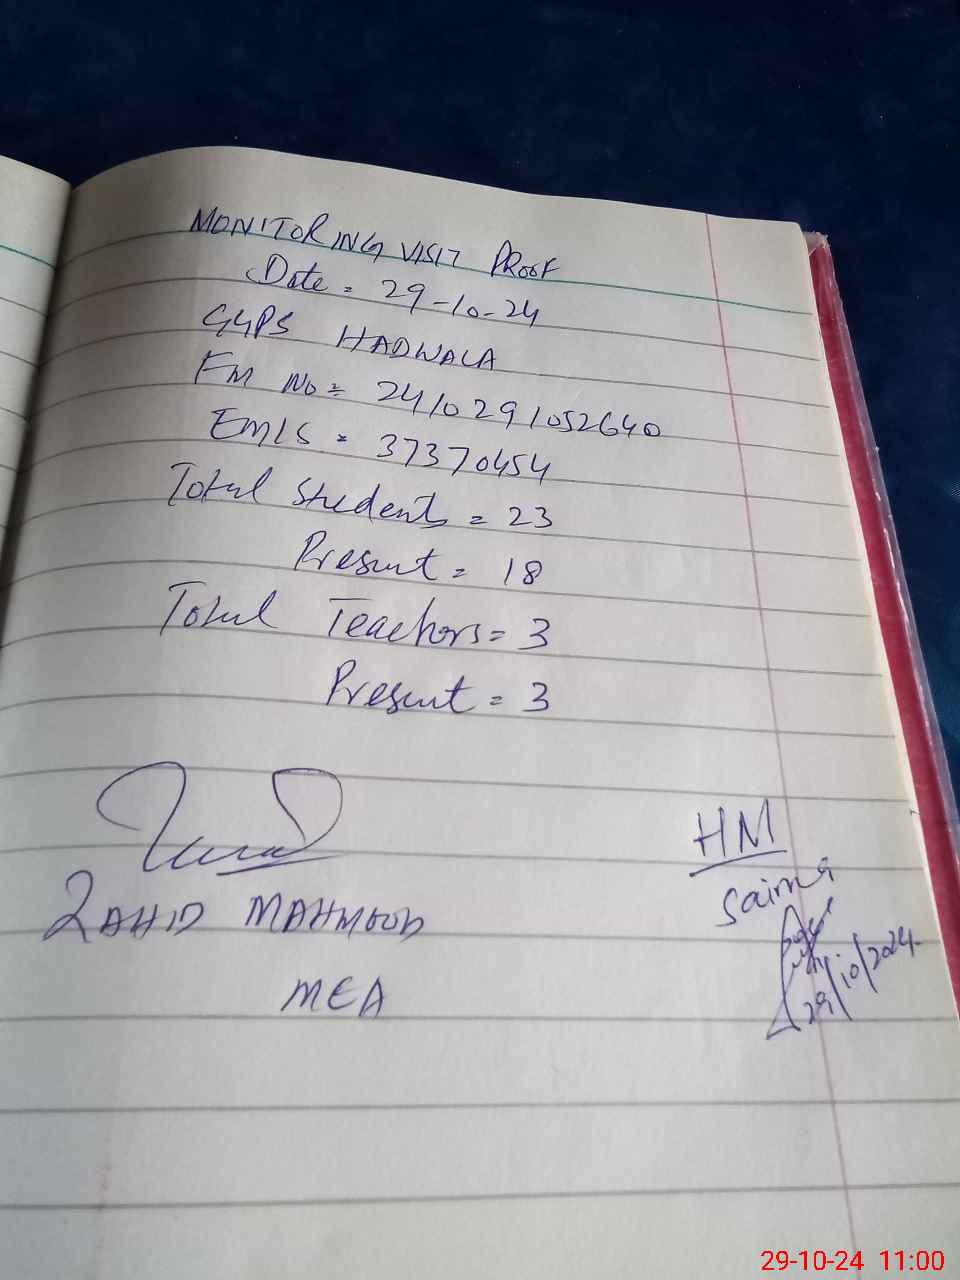 MONITORING VISIT PROOF
Date = 29-10-24
GGPS HADWALA
FM No = 2410291052640
EMIS = 37370454
Total Students = 23
Present = 18
Total Teachers = 3
Present = 3
ZAHID MAHMOOD
MEA
HM
Saima
29/10/2024
29-10-24 11:00